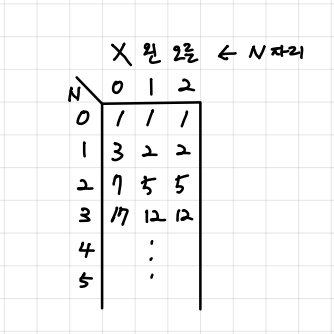 X 왼 오른 ← N 자리
N 0 1 2
0 1 1 1
1 3 2 2
2 7 5 5
3 17 12 12
4 :
5 .